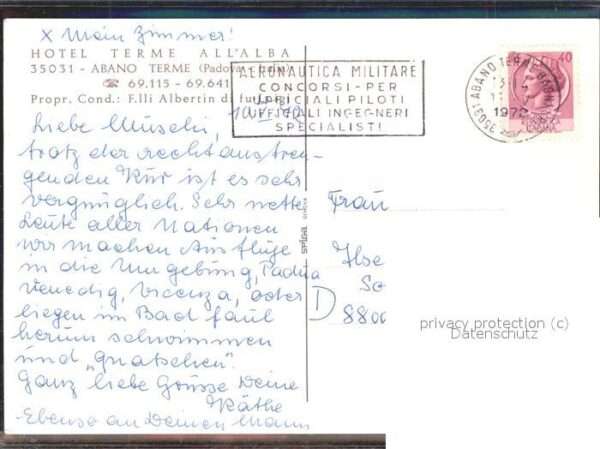 x Mein Zimmer!
HOTEL TERME ALL'ALBA
35031 - ABANO TERME (Padova - Italia)
☎ 69.115 - 69.641
Propr. Cond.: F.lli Albertin di
AERONAUTICA MILITARE
CONCORSI - PER
UFFICIALI PILOTI
UFFICIALI INGEGNERI
SPECIALISTI
35031 ABANO TERME
40
Liebe Muschi,
trotz der recht anstren-
genden Kur ist es sehr
vergnüglich. Sehr nette
Leute aller Nationen
wir machen Ausflüge
in die Umgebung, Padua
Venedig, Vicenza, oder
liegen im Bad faul
herum schwimmen
und „quatschen".
Ganz liebe Grüsse Deine
Käthe
Ebenso an Deinen Mann
Frau
Ilse
D 8800
privacy protection (c)
Datenschutz